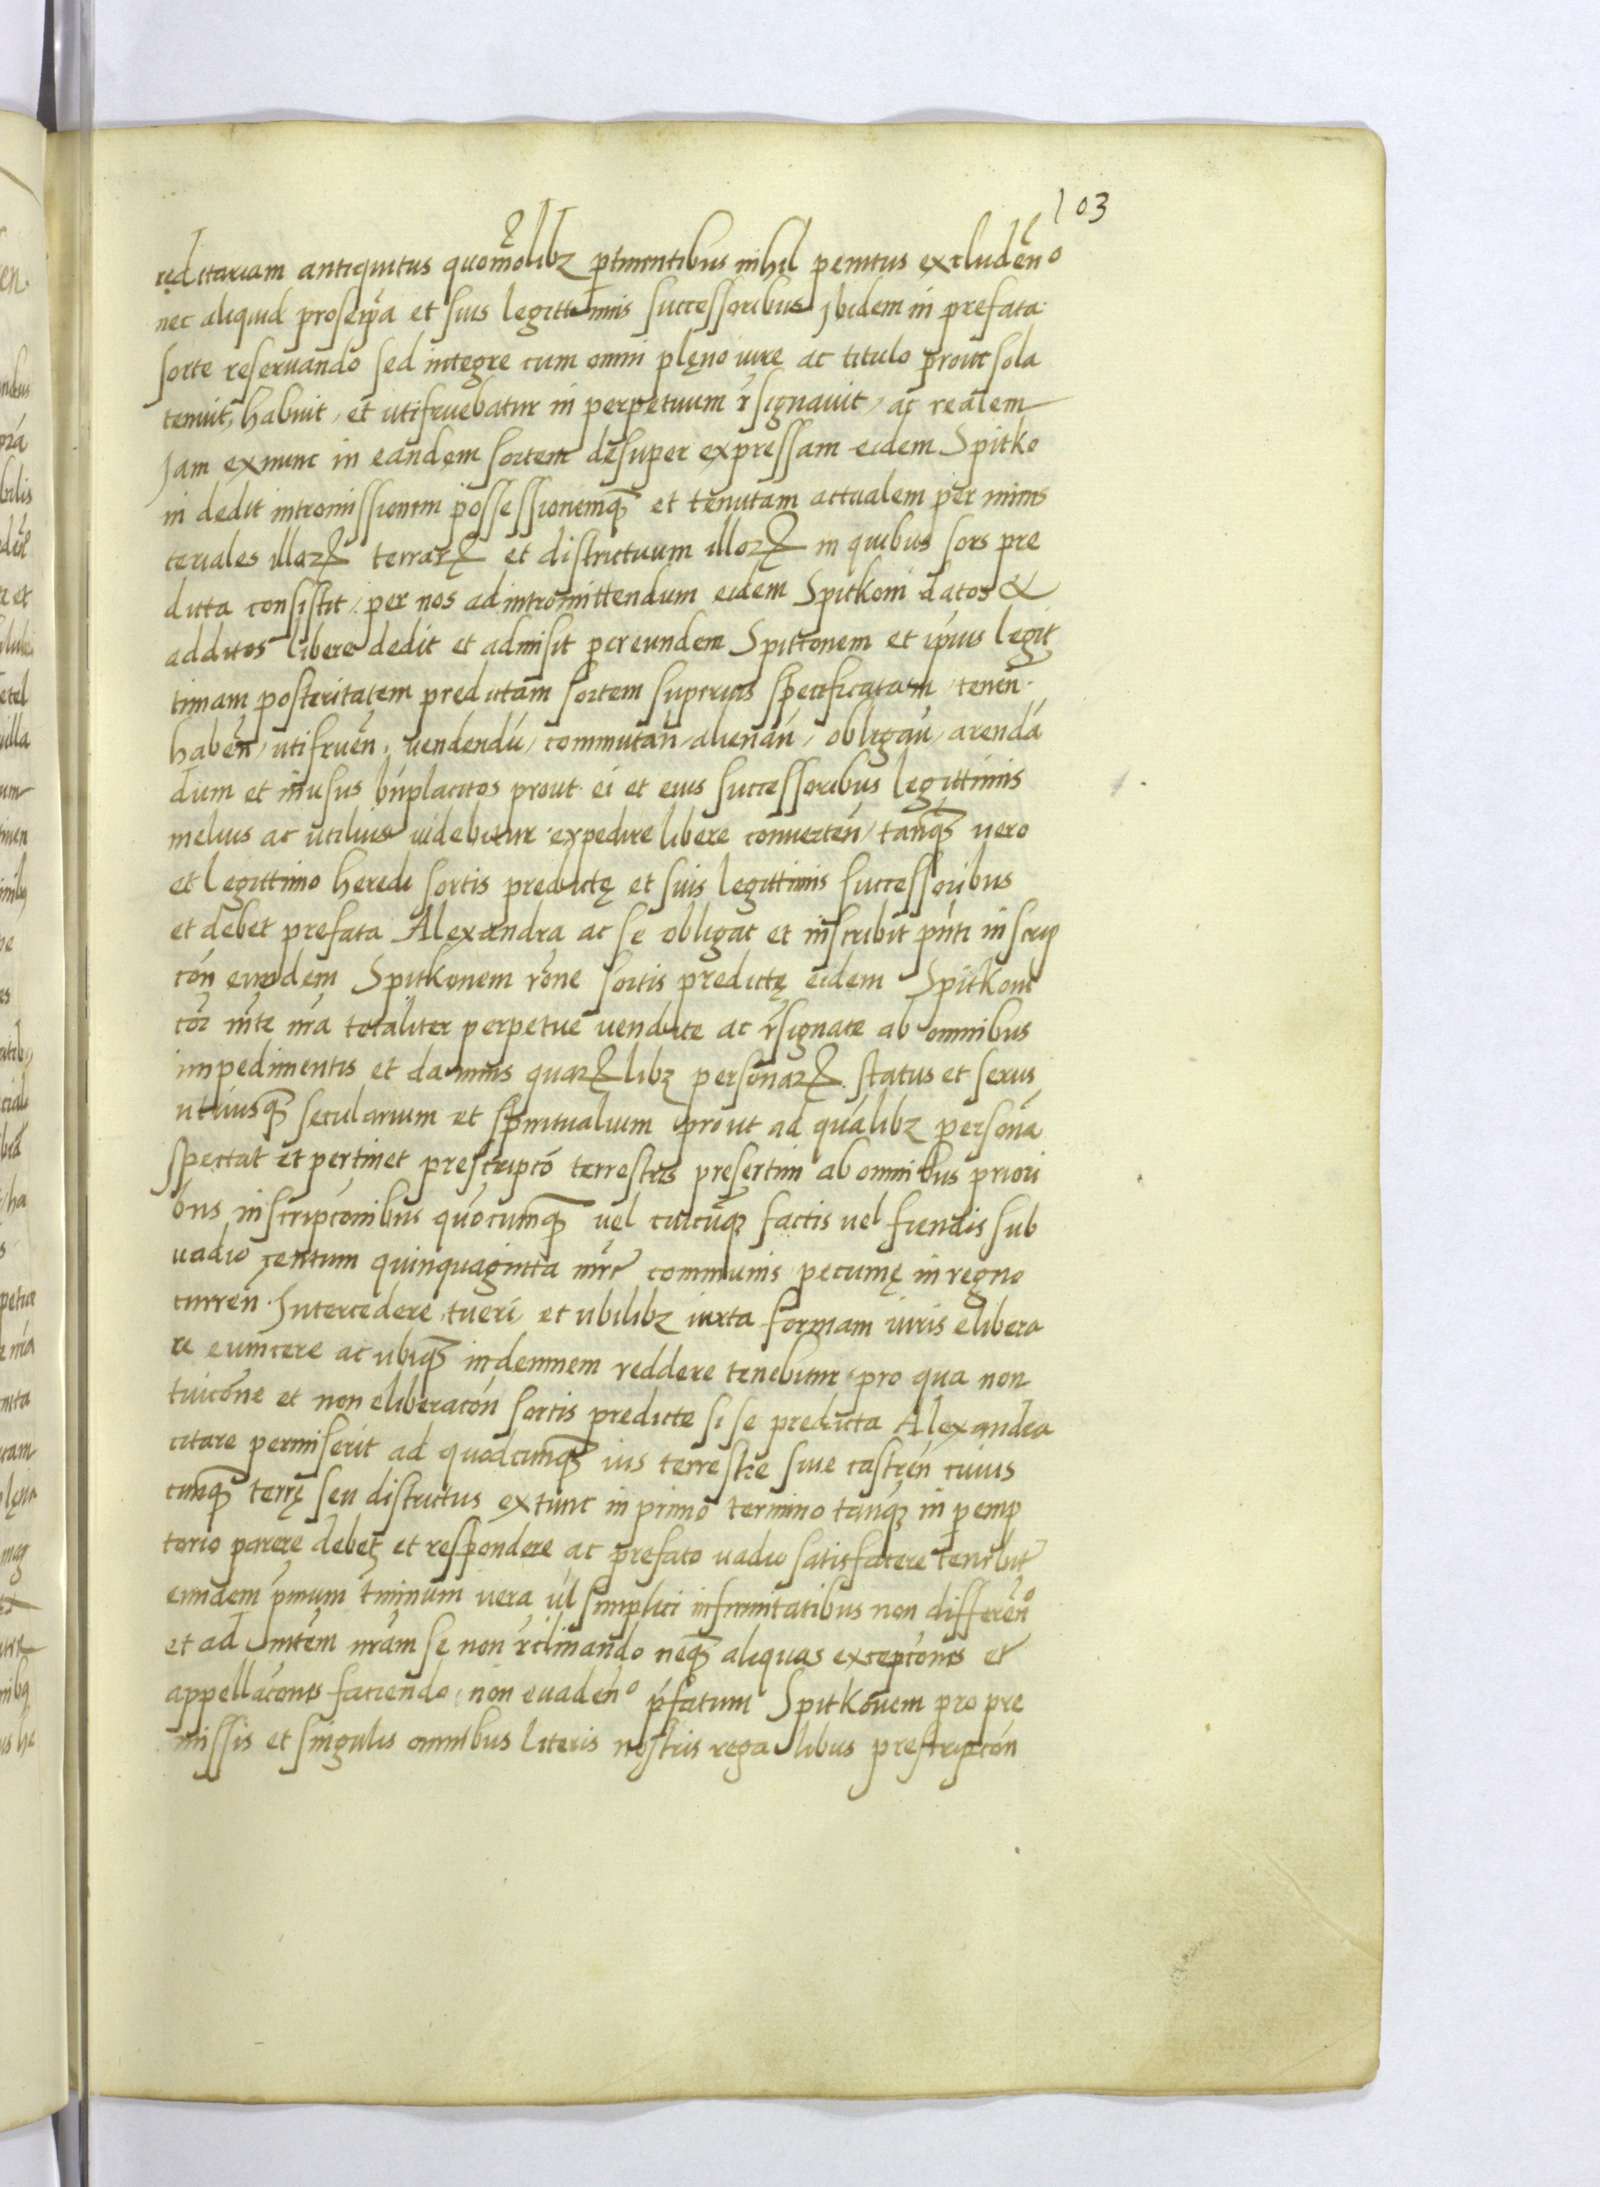 103
reditariam antiquitus quomōlibz ptinentibus nihil penitus excludēn̄o
nec aliquid proseip̄a et suis legittimis successoribus ibidem in prefata
sorte reseruando sed integre cum omni plęno iure ac titulo prout sola
tenuit, habuit, et utifruebatur in perpetuum r̄signauit, ac realem
Jam exnunc in eandem sortem desuper expressam eidem Spitko
ni dedit intromissionem possessionemq̃ et tenutam actualem per minis
teriales illorꝝ terrarꝝ et districtuum illorꝝ in quibus sors pre
dicta consistit, per nos ad intromittendum eidem Spitkoni datos &
additos libere dedit et admisit per eundem Spitconem et ip̄ius legit
timam posteritatem predictam sortem superius specificatam, tenēn
habēn, utifruēn, uendendū, commutān, alienān, obligān, arendā
dum et in usus bn̄placitos prout ei et eius successoribus legittimis
melius ac utilius uidebitur expedire libere conuertēn, tanq̃ uero
et legittimo heredi sortis predictę et suis legittimis successoribus
et debet prefata Alexandra ac se obligat et inscribit pn̄ti inscrip
cōn eundem Spitkonem r̄one sortis predictę eidem Spitkoni
cor̄ mte nr̄a totaliter perpetue uendite ac r̄signate ab omnibus
impedimentis et damnis quarꝝlibz personarꝝ status et sexus
utriusq̃ secularium et spiritualium prout ad quālibz personā
spectat et pertinet prescripcō terrestris presertim ab omnibus priori
bus inscripcōnibus quōcumq̃ uel cuicūq̃ factis uel fiendis sub
uadio centum quinquaginta mrc̄ communis pecunię in regno
curren. Intercedere tueri et ubilibz iuxta formam iuris elibera
re euincere ac ubiq̃ indemnem reddere tenebitur, pro qua non
tuicōne et non eliberacōn sortis predicte si se predicta Alexandra
citare permiserit ad quodcunq̃ ius terrestre siue castrēn cuius
cunq̃ terrę seu districtus extunc in primo termino tanq̃ in pemp
torio parere debet et respondere ac prefato uadio satisfacere tenebit̄
eundem pmum t̄minum uera ūl simplici infirmitatibus non differēn̄o
et ad mtem nr̄am se non r̄clinando neq̃ aliquas excepcōnes et
appellacōnes faciendo, non euadēn̄o p̄fatum Spitkonem pro pre
missis et singulis omnibus literis nostris regalibus prescripcōn